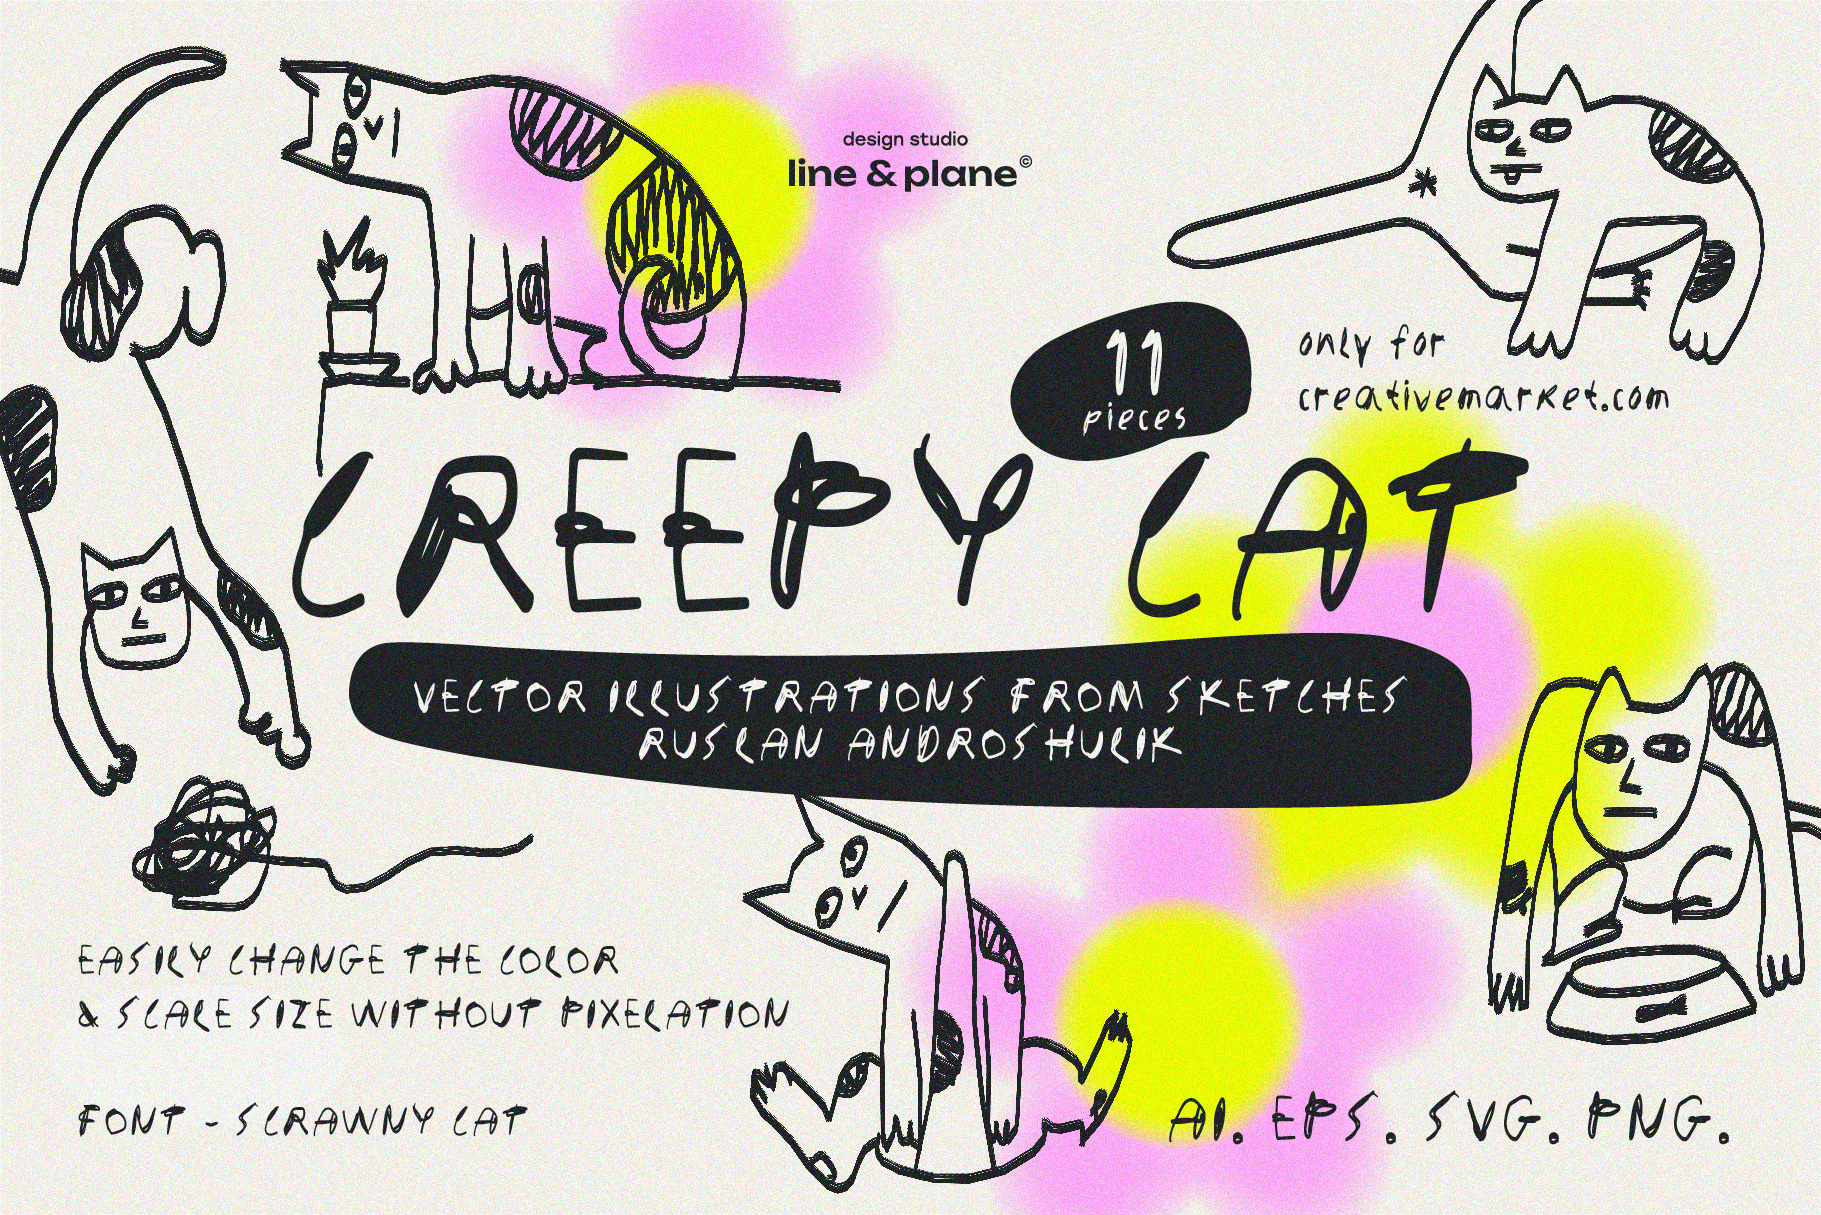 design studio
line & plane©
11
pieces
only for
creativemarket.com
CREEPY CAT
VECTOR ILLUSTRATIONS FROM SKETCHES
RUSLAN ANDROSHULIK
EASILY CHANGE THE COLOR
& SCALE SIZE WITHOUT PIXELATION
FONT - SCRAWNY CAT
AI. EPS. SVG. PNG.